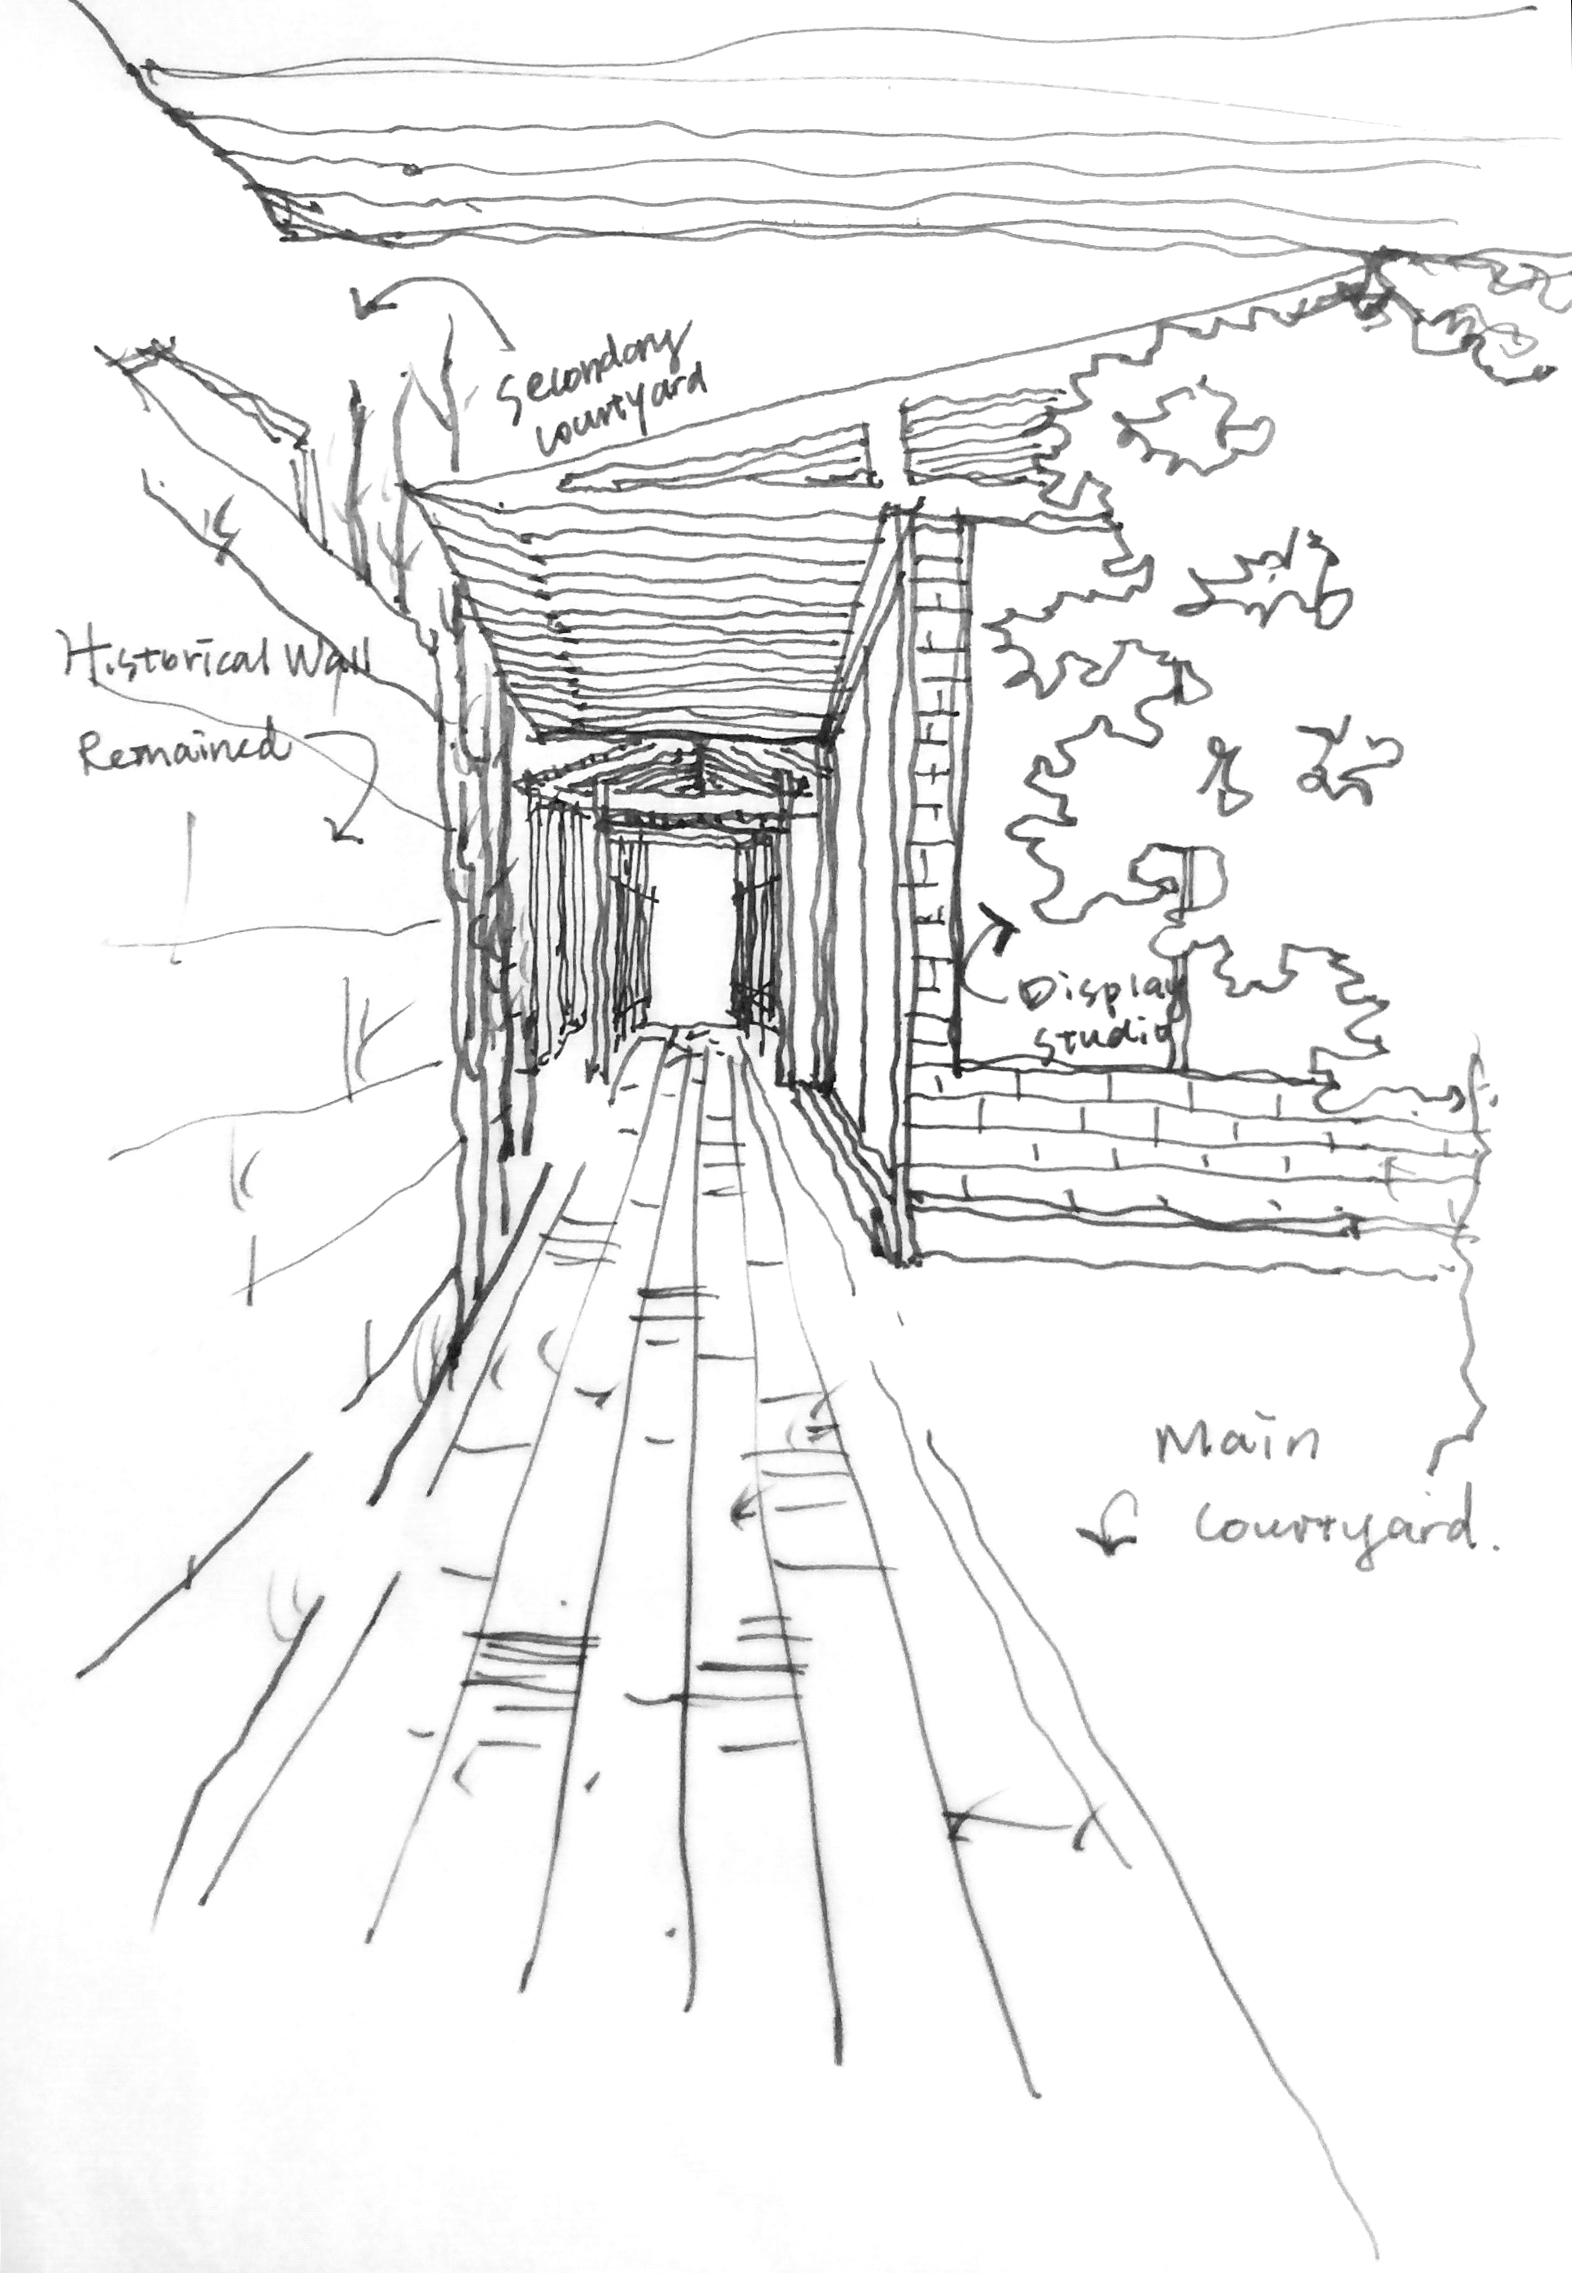 Secondary
courtyard
Historical Wall
Remained
Display
studio
Main
courtyard.